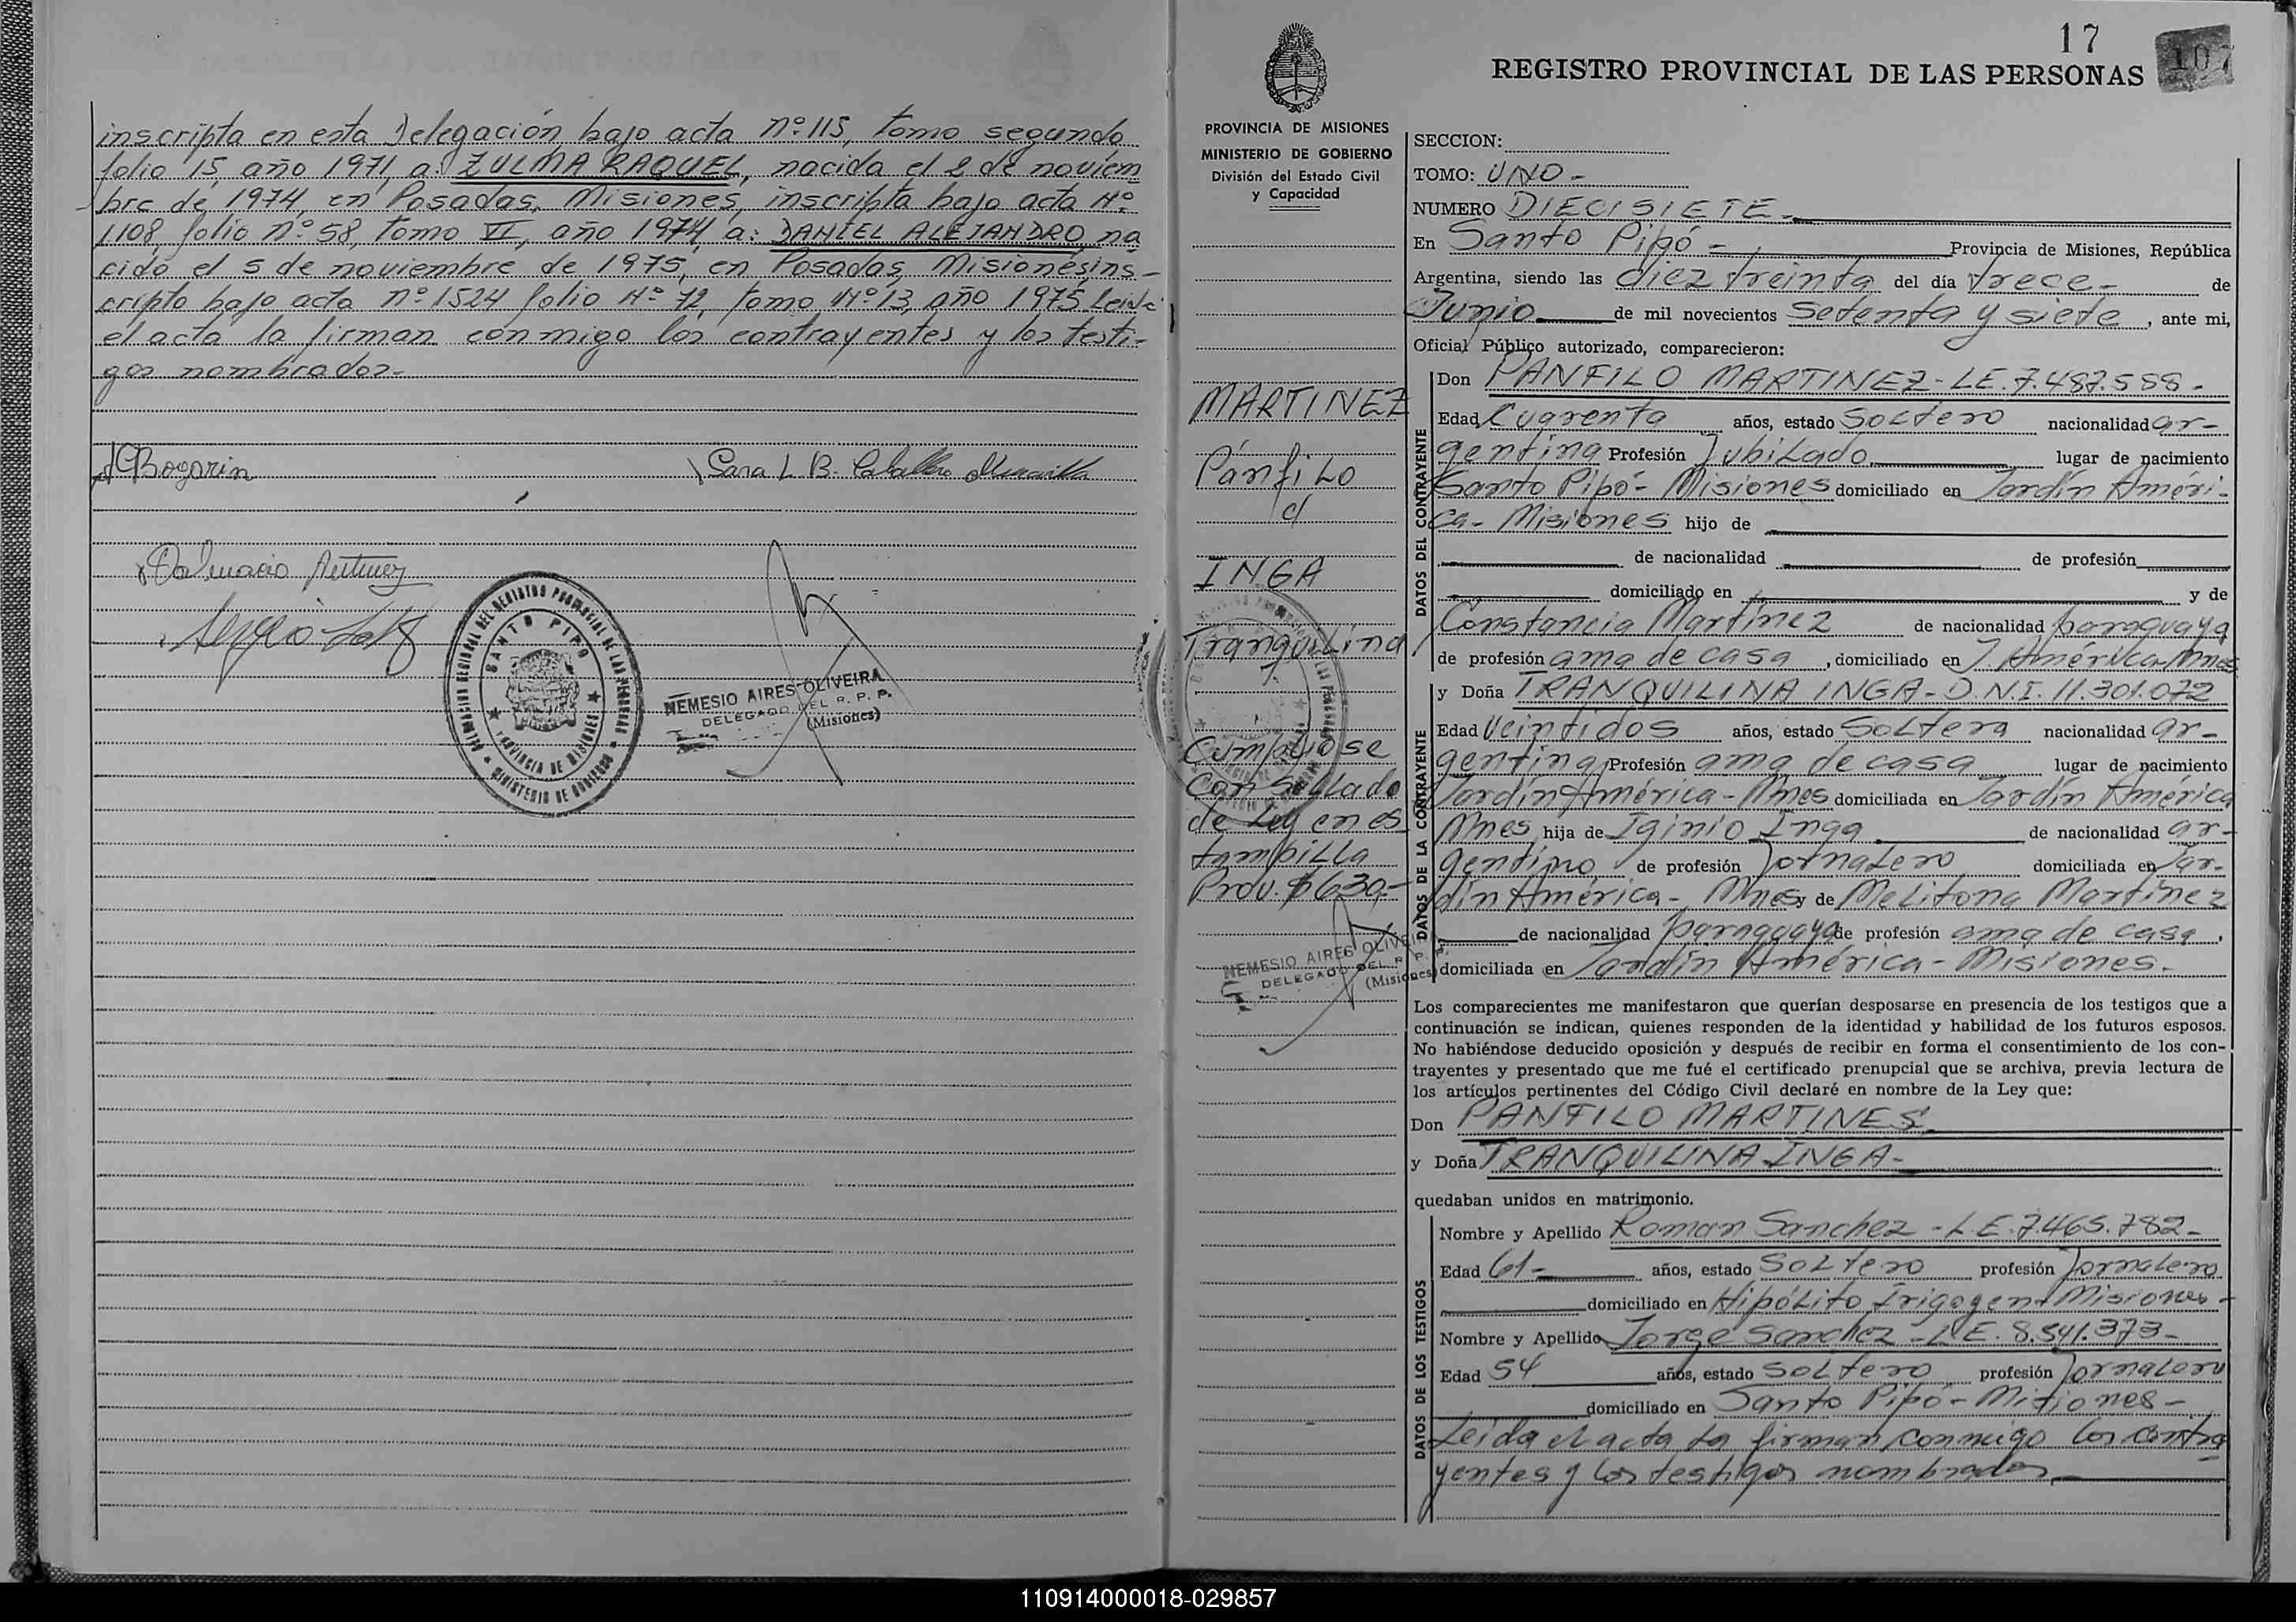 inscripta en esta Delegación bajo acta nº 115, tomo segundo
folio 15, año 1971, a: ZULMA RAQUEL, nacida el 2 de noviem
bre de 1974, en Posadas, Misiones, inscripta bajo acta Nº
1108, folio nº 58, tomo VI, año 1974, a: DANIEL ALEJANDRO na
cido el 5 de noviembre de 1975, en Posadas, Misiones, ins-
cripto bajo acta nº 1524 folio Nº 72, tomo Nº 13, año 1975. Leída
el acta la firman conmigo los contrayentes y los testi-
gos nombrados.-
Bogarin
Sara L. B. Caballero
Sergio
DELEGACION REGIONAL DEL REGISTRO PROVINCIAL DE LAS PERSONAS
SANTO PIPO
PROVINCIA DE MISIONES
MINISTERIO DE GOBIERNO
NEMESIO AIRES OLIVEIRA
DELEGADO DEL R. P. P.
(Misiones)
17
107
REGISTRO PROVINCIAL DE LAS PERSONAS
PROVINCIA DE MISIONES
MINISTERIO DE GOBIERNO
División del Estado Civil
y Capacidad
MARTINEZ
Pánfilo
c/
INGA
Tranquilina
Cumpliose
con sellado
de Ley en es
tampilla
Prov. $ 630,-
NEMESIO AIRES OLIVEIRA
DELEGADO DEL R. P. P.
(Misiones)
SECCION:
TOMO: UNO -
NUMERO DIECISIETE -
En Santo Pipó - Provincia de Misiones, República
Argentina, siendo las diez treinta del día trece - de
Junio de mil novecientos setenta y siete, ante mi,
Oficial Público autorizado, comparecieron:
DATOS DEL CONTRAYENTE
Don PANFILO MARTINEZ - L.E. 7.487.588 -
Edad Cuarenta años, estado soltero nacionalidad ar-
gentina Profesión Jubilado lugar de nacimiento
Santo Pipó - Misiones domiciliado en Jardín Améri-
ca - Misiones hijo de
de nacionalidad de profesión
domiciliado en y de
Constancia Martínez de nacionalidad paraguaya
de profesión ama de casa, domiciliado en J. América - Mnes
DATOS DE LA CONTRAYENTE
y Doña TRANQUILINA INGA - D.N.I. 11.301.072
Edad Veintidos años, estado soltera nacionalidad ar-
gentina Profesión ama de casa lugar de nacimiento
Jardín América - Mnes domiciliada en Jardín América
Mnes hija de Iginio Inga de nacionalidad ar-
gentino de profesión Jornalero domiciliada en Jar-
dín América - Mnes y de Melitona Martínez
de nacionalidad paraguaya de profesión ama de casa,
domiciliada en Jardín América - Misiones.
Los comparecientes me manifestaron que querían desposarse en presencia de los testigos que a
continuación se indican, quienes responden de la identidad y habilidad de los futuros esposos.
No habiéndose deducido oposición y después de recibir en forma el consentimiento de los con-
trayentes y presentado que me fué el certificado prenupcial que se archiva, previa lectura de
los artículos pertinentes del Código Civil declaré en nombre de la Ley que:
Don PANFILO MARTINES
y Doña TRANQUILINA INGA -
quedaban unidos en matrimonio.
DATOS DE LOS TESTIGOS
Nombre y Apellido Roman Sanchez - L.E. 7.465.782 -
Edad 61 - años, estado soltero profesión Jornalero
domiciliado en Hipólito Irigoyen - Misiones -
Nombre y Apellido Jorge Sanchez - L.E. 8.541.373 -
Edad 54 años, estado soltero profesión Jornalero
domiciliado en Santo Pipó - Misiones -
Leida el acta la firman conmigo los contra
yentes y los testigos nombrados
110914000018-029857